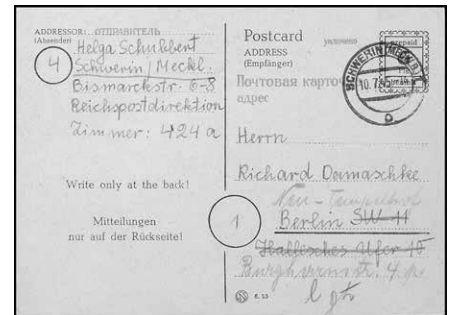 ADDRESSOR: ОТПРАВИТЕЛЬ
(Absender)
Helga Schubbert
4
Schwerin / Meckl.
Bismarckstr. 6-8
Reichspostdirektion
Zimmer: 424 a
Write only at the back!
Mitteilungen
nur auf der Rückseite!
Postcard
ADDRESS
(Empfänger)
уплочено
prepaid
Почтовая карточ
адрес
SCHWERIN (MECKL)
10.7.45
b
Herrn
Richard Damaschke
Neu-Tempelhof
1
Berlin SW 11
Hallesches Ufer 15
4
6. 53